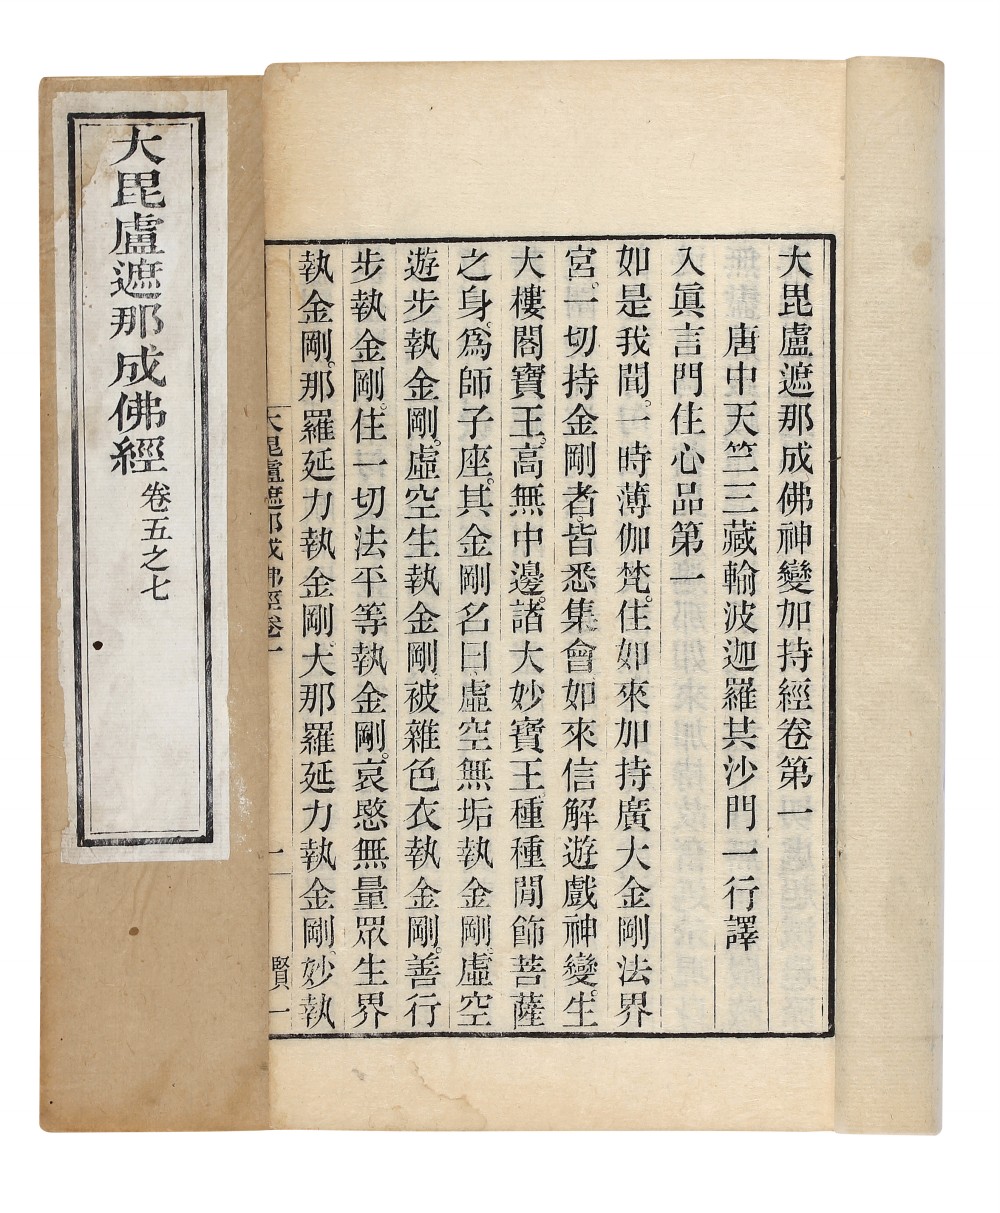 大毘盧遮那成佛神變加持經卷第一
唐中天竺三藏輸波迦羅共沙門一行譯
入眞言門住心品第一
如是我聞。一時薄伽梵。住如來加持廣大金剛法界
宮。一切持金剛者。皆悉集會如來信解遊戲神變。生
大樓閣寶王。高無中邊。諸大妙寶王種種閒飾菩薩
之身。爲師子座。其金剛名曰虛空無垢執金剛。虛空
遊步執金剛。虛空生執金剛。被雜色衣執金剛。善行
步執金剛。住一切法平等執金剛。哀愍無量眾生界
執金剛。那羅延力執金剛。大那羅延力執金剛。妙執
大毘盧遮那成佛經卷一
一
賢一
大毘盧遮那成佛經卷五之七